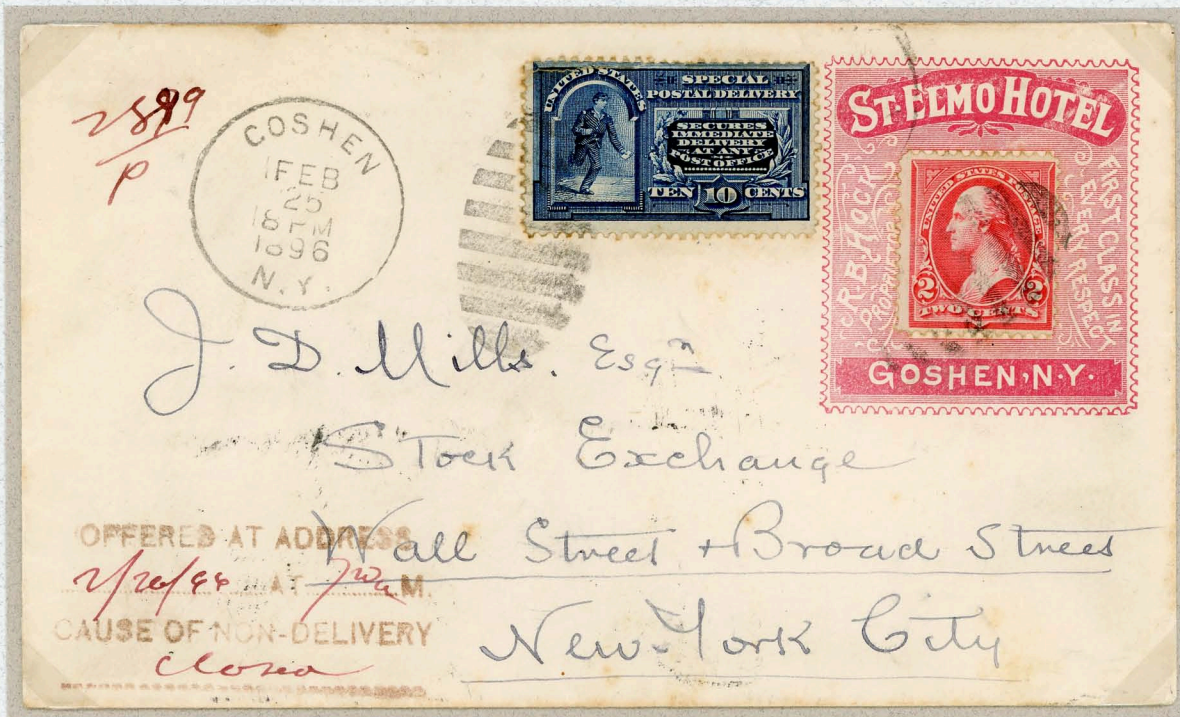 GOSHEN
FEB
25
8 PM
1896
N.Y.
UNITED STATES
SPECIAL
POSTAL DELIVERY
SECURES
IMMEDIATE
DELIVERY
AT ANY
POST OFFICE
TEN 10 CENTS
ST. ELMO HOTEL
R. B. HOCK
PROPRIETOR
FIRST CLASS IN
EVERY RESPECT
UNITED STATES POSTAGE
2 2
TWO CENTS
GOSHEN, N.Y.
J. D. Mills. Esqr
Stock Exchange
Wall Street + Broad Street
New-York City
OFFERED AT ADDRESS
2/26/96 AT M.
CAUSE OF NON-DELIVERY
Closed